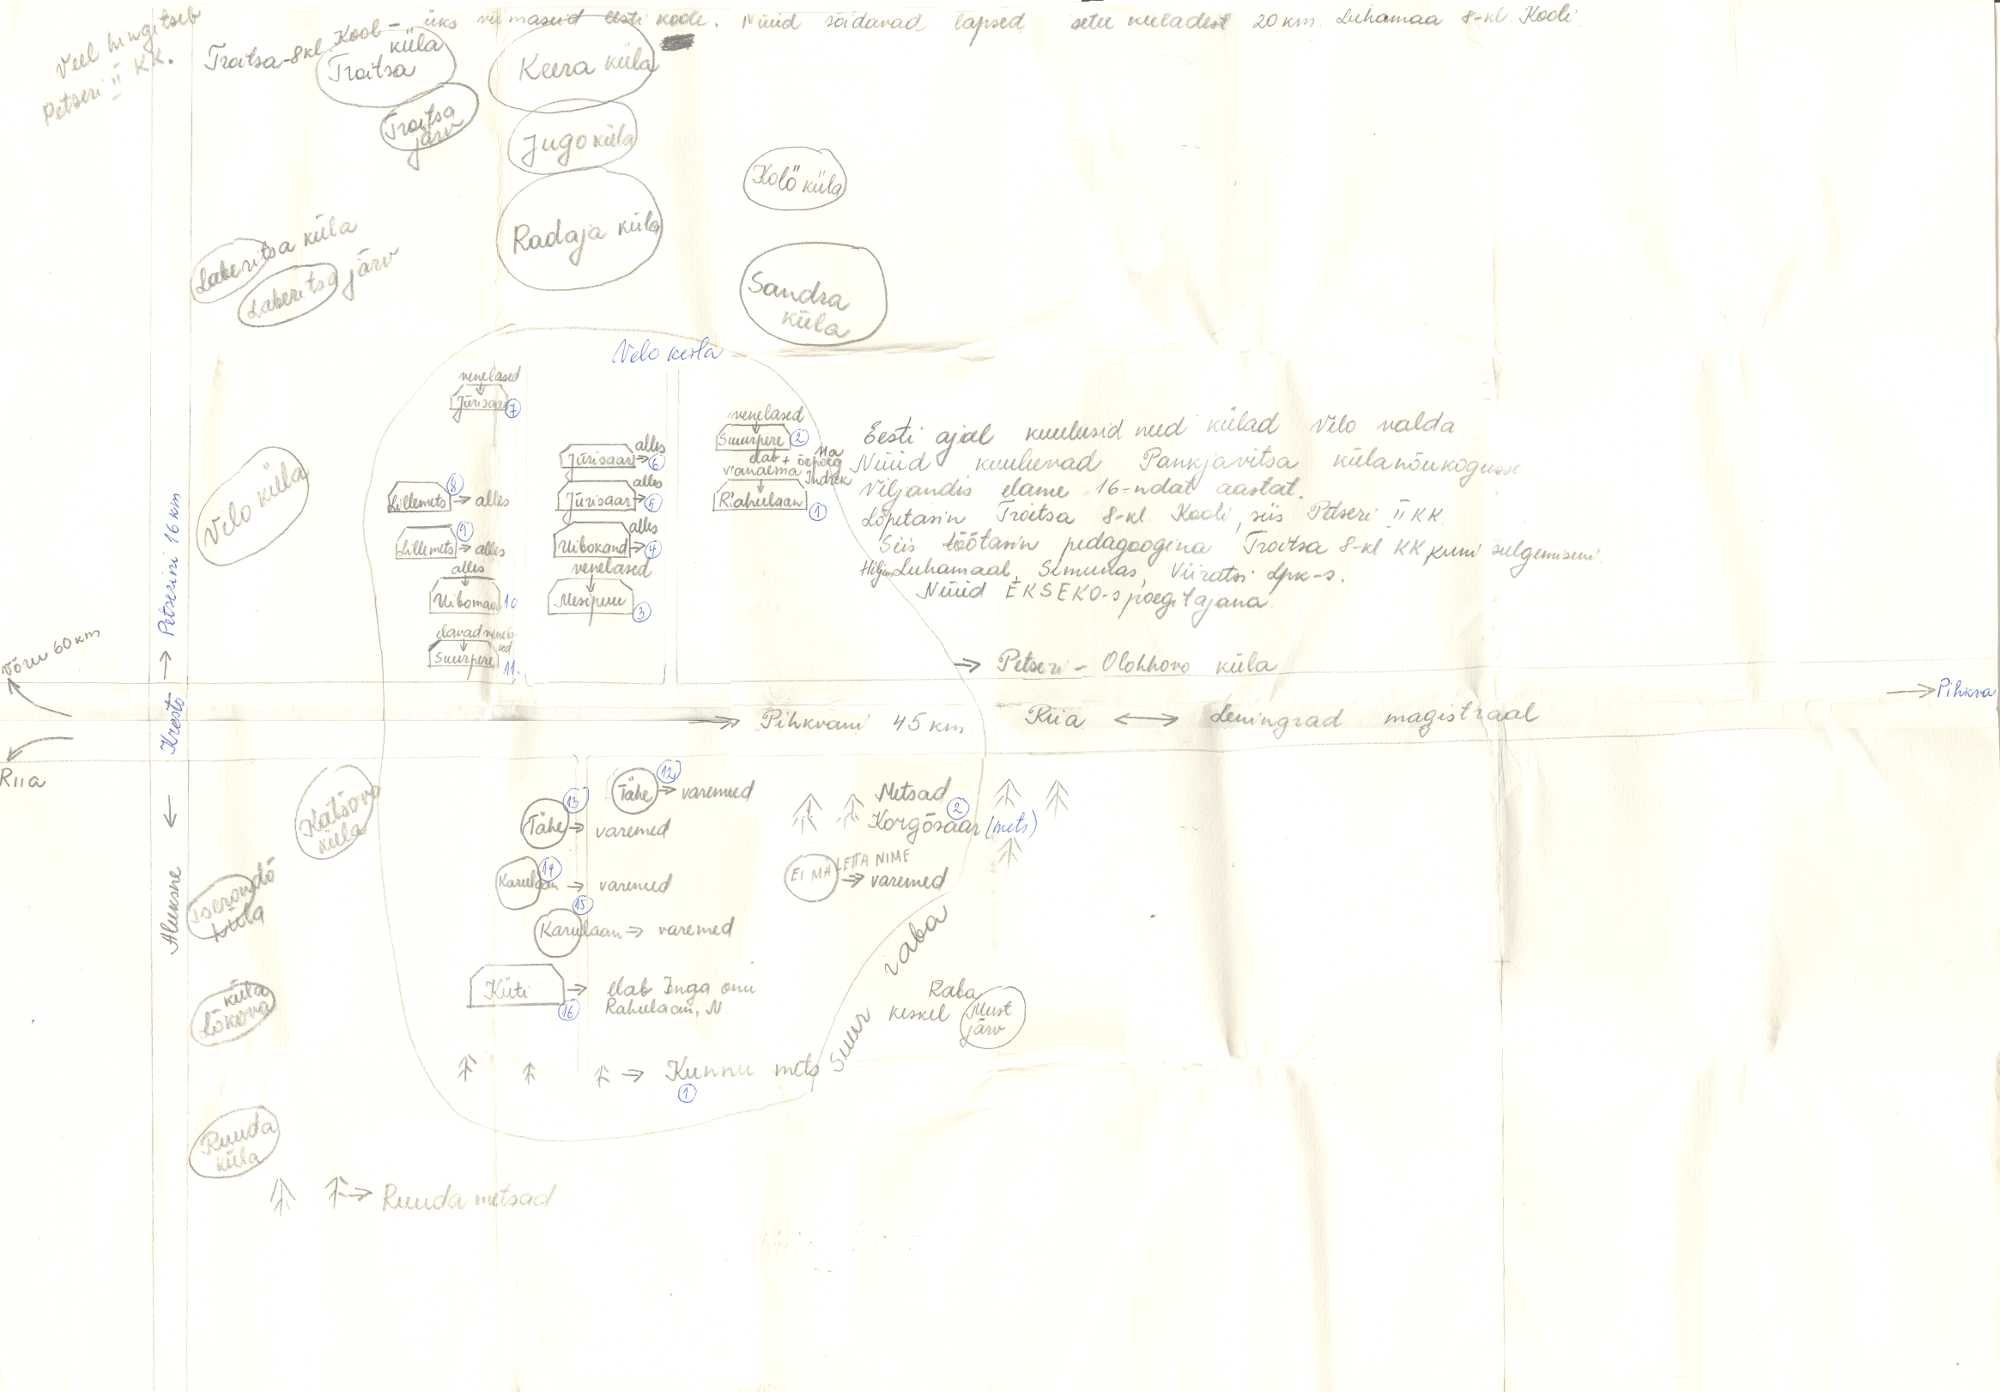 Veel hingitseb
Petseri II KK.
Troitsa-8kl Kool - üks viimaseid Eesti koole. Nüüd sõidavad lapsed setu küladest 20 km Luhamaa 8-kl Kooli
Troitsa küla
Troitsa järv
Keera küla
Jugo küla
Kolo küla
Radaja küla
Laberitsa küla
Laberitsa järv
Sandra küla
Velo küla
venelased
Jürisaar 7
venelased
Suurpere 2
elab + õepoeg
vanaema Indrek
Rahulaan 1
alles
Jürisaar 6
alles
Jürisaar 5
alles
Uibokand 4
venelased
Mesipuu 3
Lillemets 8 alles
Lillemets 9 alles
alles
Uibomaa 10
elavad venelased
Suurpere 11.
Eesti ajal kuulusid need külad Velo valda
Nüüd kuuluvad Pankjavitsa külanõukogusse
Viljandis elame 16-ndat aastat.
Lõpetasin Troitsa 8-kl. Kooli, siis Petseri II KK.
Siis töötasin pedagoogina Troitsa 8-kl KK kuni sulgemiseni
Hiljem Luhamaal, Simunas, Viiratsi Lpk-s.
Nüüd EKSEKO-s poegitajana.
Petserini 16 km
Kresto
Aluksne
Võru 60 km
Riia
→ Petseri - Olohhovo küla
→ Pihkva
→ Pihkvani 45 km
Riia ↔ Leningrad magistraal
Kätsova küla
Tserondõ küla
küla
Lõkova
Ruuda küla
Tähe 12 → varemed
Tähe 13 → varemed
Karulaan 14 → varemed
Karulaan 15 → varemed
Küti 16 → elab Inga onu
Rahulaan, N
Metsad
2
Korgõsaar (mets)
EI MÄLETA NIME
→ varemed
Suur raba
Raba keskel Must järv
→ Kunnu mets
1
→ Ruuda metsad